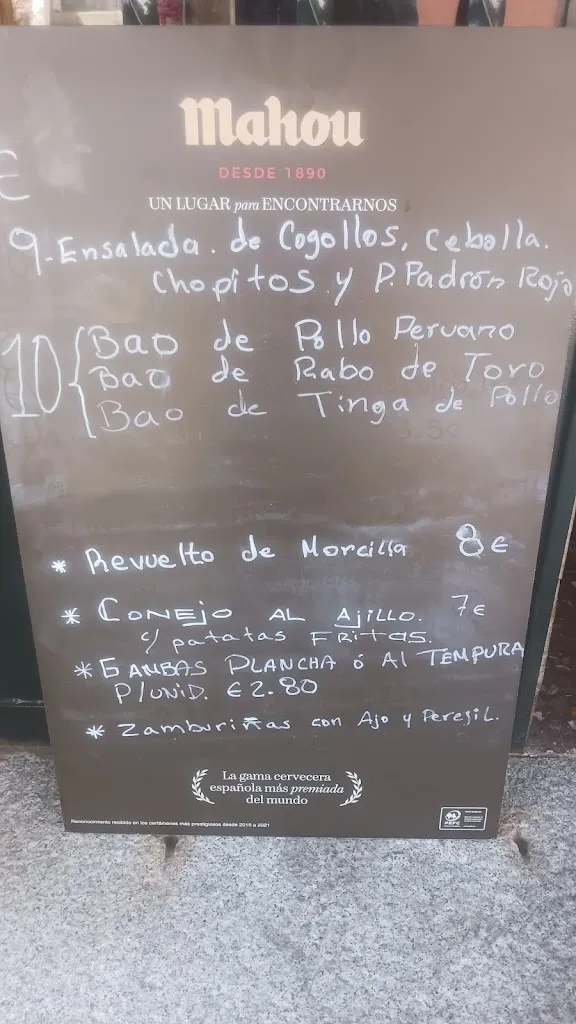 Mahou
DESDE 1890
UN LUGAR para ENCONTRARNOS
€
9-Ensalada. de Cogollos, Cebolla.
Chopitos y P. Padrón Rojo
10 { Bao de Pollo Peruano
Bao de Rabo de Toro
Bao de Tinga de Pollo
* Revuelto de Morcilla 8€
* CONEJO AL AJILLO. 7€
c/ patatas FRitas.
* GAMBAS PLANCHA ó Al TEMPURA
P/UNID. €2.80
* Zamburiñas con Ajo y Peregil.
La gama cervecera
española más premiada
del mundo
Reconocimiento recibido en los certámenes más prestigiosos desde 2015 a 2021
PEFC